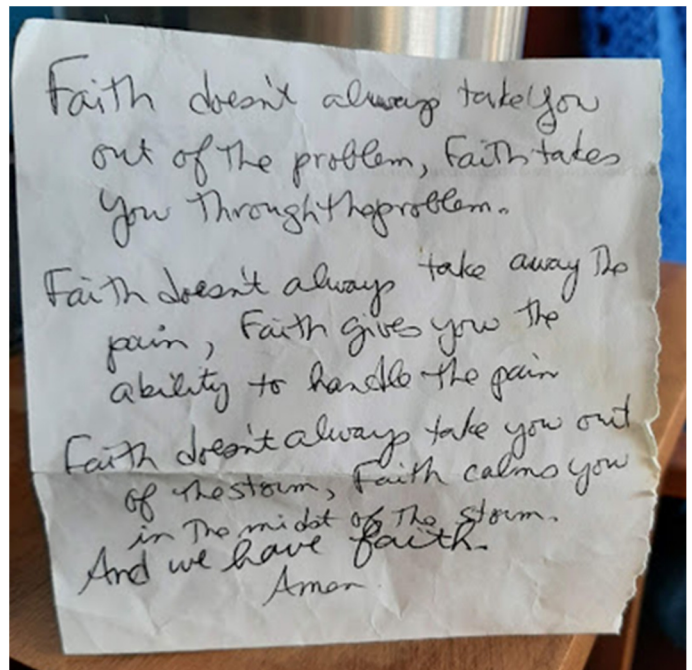 Faith doesn't always take you
out of the problem, Faith takes
you through the problem.
Faith doesn't always take away the
pain, Faith gives you the
ability to handle the pain
Faith doesn't always take you out
of the storm, Faith calms you
in the midst of the storm.
And we have faith.
Amen